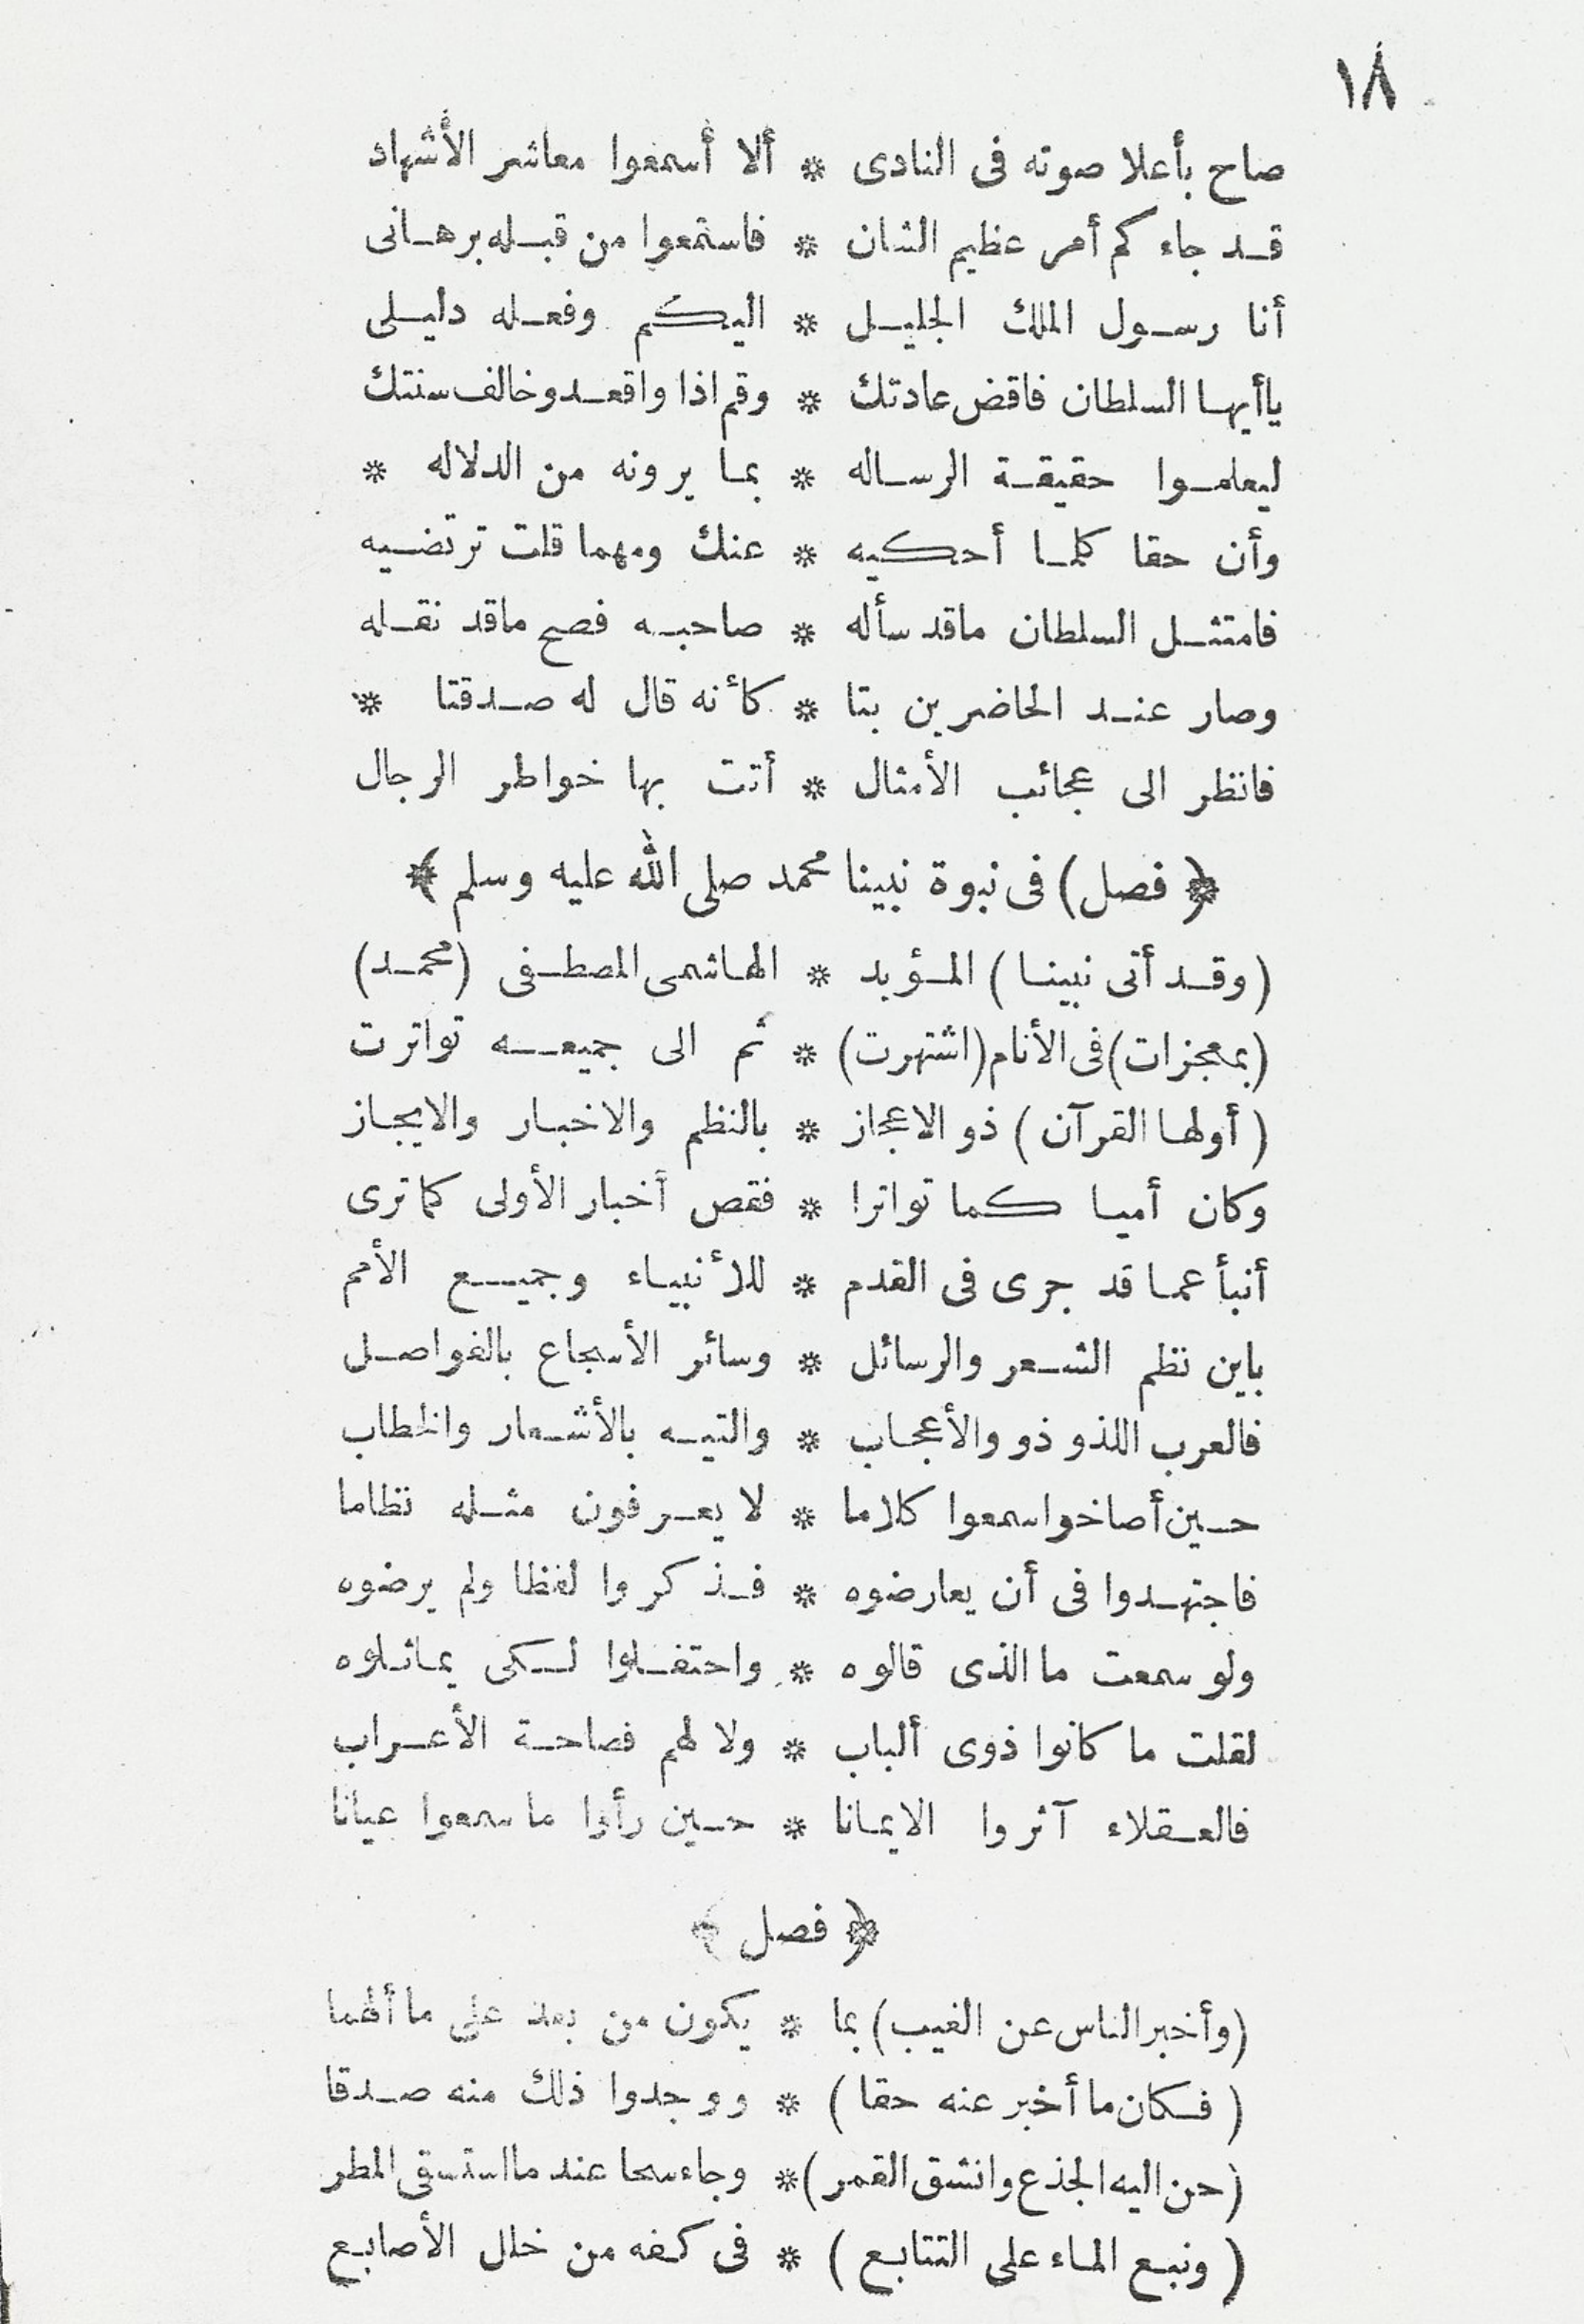 ١٨
صاح بأعلا صوته فى النادى * ألا أسمعوا معاشر الأشهاد
قد جاءكم أمر عظيم الشان * فاستمعوا من قبله برهانى
أنا رسول الملك الجليل * اليكم وفعله دليلى
ياأيها السلطان فاقض عادتك * وقم اذا واقعد وخالف سنتك
ليعلموا حقيقة الرساله * بما يرونه من الدلاله *
وأن حقا كلما أحكيه * عنك ومهما قلت ترتضيه
فامتثل السلطان ماقد سأله * صاحبه فصح ماقد نقله
وصار عند الحاضرين بتا * كأنه قال له صدقتا *
فانظر الى عجائب الأمثال * أتت بها خواطر الرجال
﴿ فصل) فى نبوة نبينا محمد صلى الله عليه وسلم ﴾
(وقد أتى نبينا) المؤيد * الهاشمى المصطفى (محمد)
(بمعجزات) فى الأنام (اشتهرت) * ثم الى جميعه تواترت
(أولها القرآن) ذو الاعجاز * بالنظم والاخبار والايجاز
وكان أميا كما تواترا * فقص أخبار الأولى كما ترى
أنبأ عما قد جرى فى القدم * للأنبياء وجميع الأمم
باين نظم الشعر والرسائل * وسائر الأسجاع بالفواصل
فالعرب اللذو ذو والأعجاب * والتيه بالأشعار والخطاب
حين أصاخوا سمعوا كلاما * لا يعرفون مثله نظاما
فاجتهدوا فى أن يعارضوه * فذكروا لفظا ولم يرضوه
ولو سمعت ما الذى قالوه * واحتفلوا لكى يماثلوه
لقلت ما كانوا ذوى ألباب * ولا لهم فصاحة الأعراب
فالعقلاء آثروا الايمانا * حين رأوا ما سمعوا عيانا
﴿ فصل ﴾
(وأخبر الناس عن الغيب) بما * يكون من بعد على ما ألهما
(فكان ما أخبر عنه حقا) * ووجدوا ذلك منه صدقا
(حن اليه الجذع وانشق القمر) * وجاء سحا عند ما استسقى المطر
(ونبع الماء على التتابع) * فى كفه من خلل الأصابع